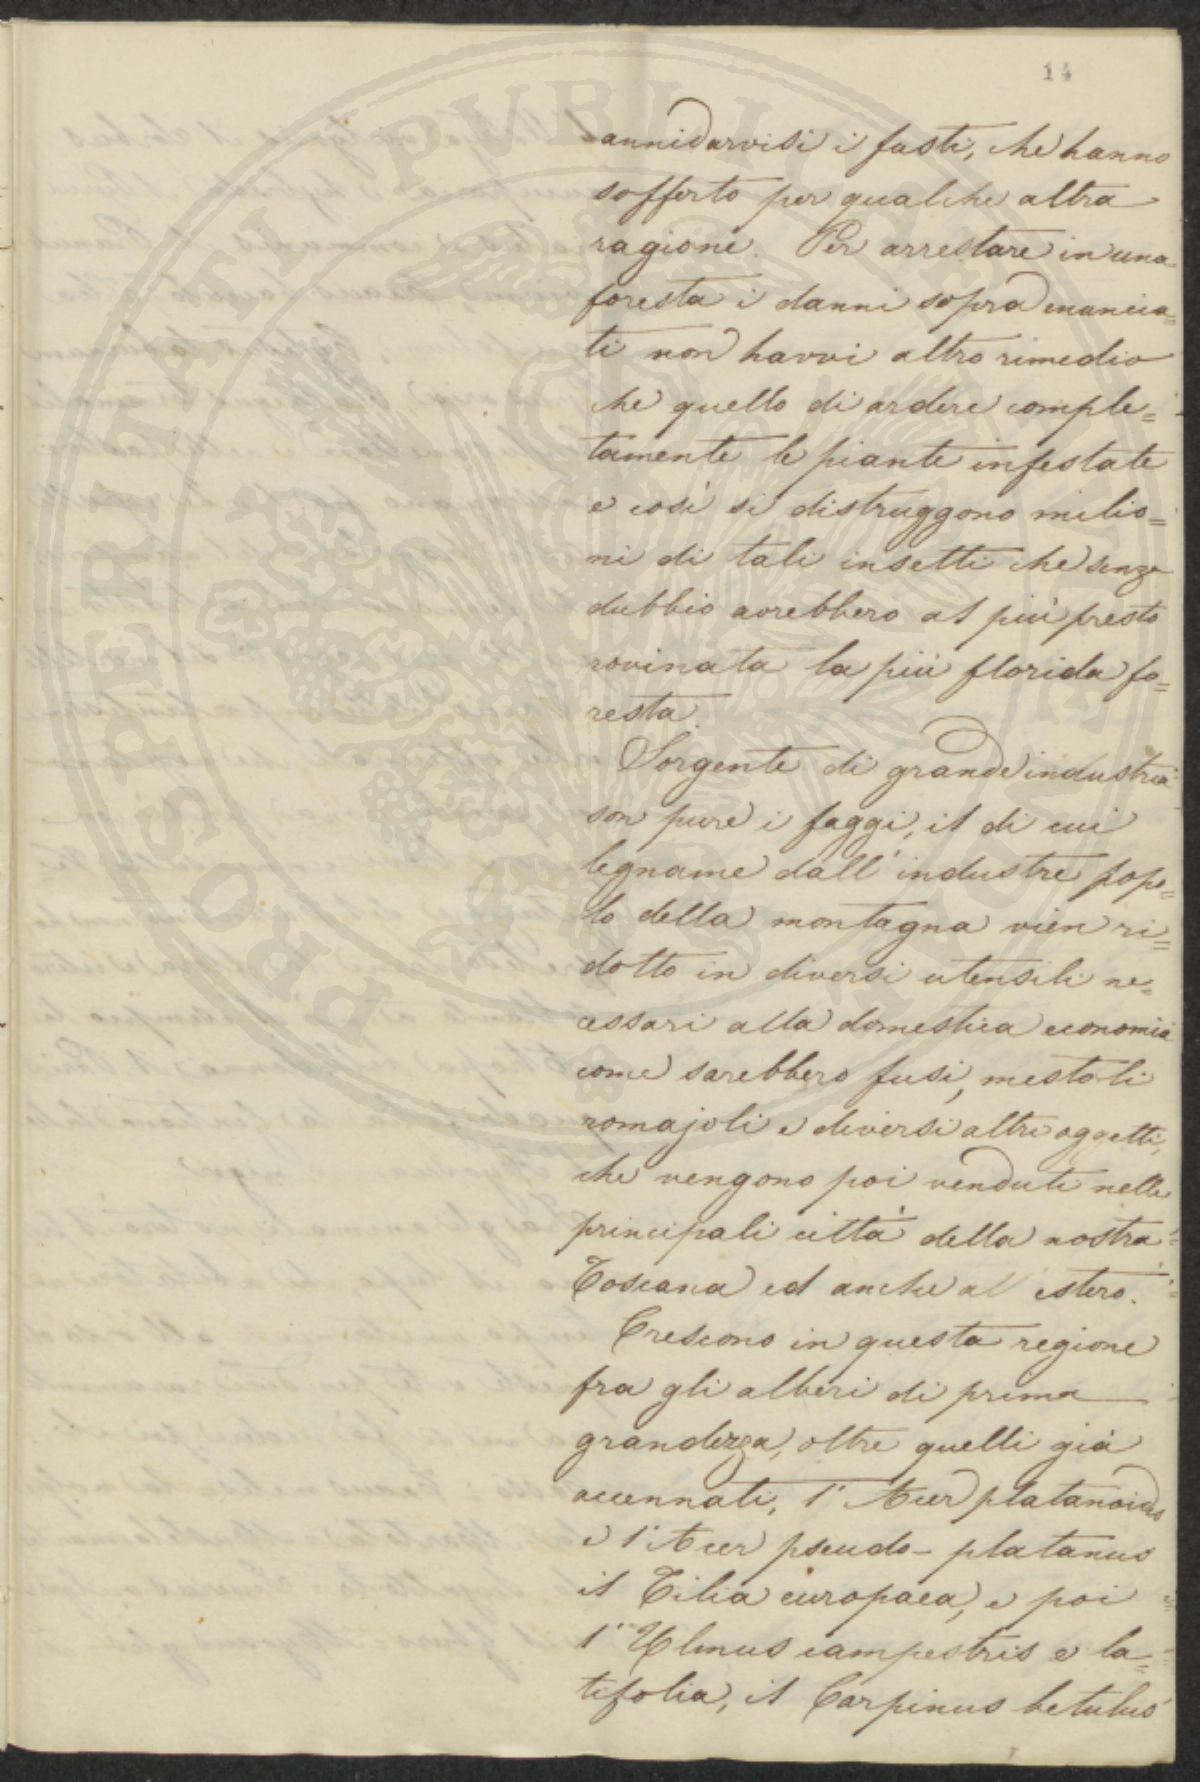 14
annidarvisi i fusti, che hanno
sofferto per qualche altra
ragione. Per arrestare in una
foresta i danni sopra enuncia=
ti non havvi altro rimedio
che quello di ardere comple=
tamente le piante infestate
e così si distruggono milio=
ni di tali insetti che senza
dubbio avrebbero al più presto
rovinata la più florida fo=
resta.
Sorgente di grande industria
son pure i faggi, il di cui
legname dall' industre popo=
lo della montagna vien ri=
dotto in diversi utensili ne=
cessari alla domestica economia
come sarebbero fusi, mestoli
romajoli e diversi altri oggetti,
che vengono poi venduti nelle
principali città della nostra
Toscana ed anche all estero.
Crescono in questa regione
fra gli alberi di prima
grandezza, oltre quelli già
accennati, l' Acer platanoides
e l' Acer pseudo-platanus
il Tilia europaea, e poi
l' Ulmus campestris e la=
tifolia, il Carpinus betulus
PROSPERITATI PUBLICAE